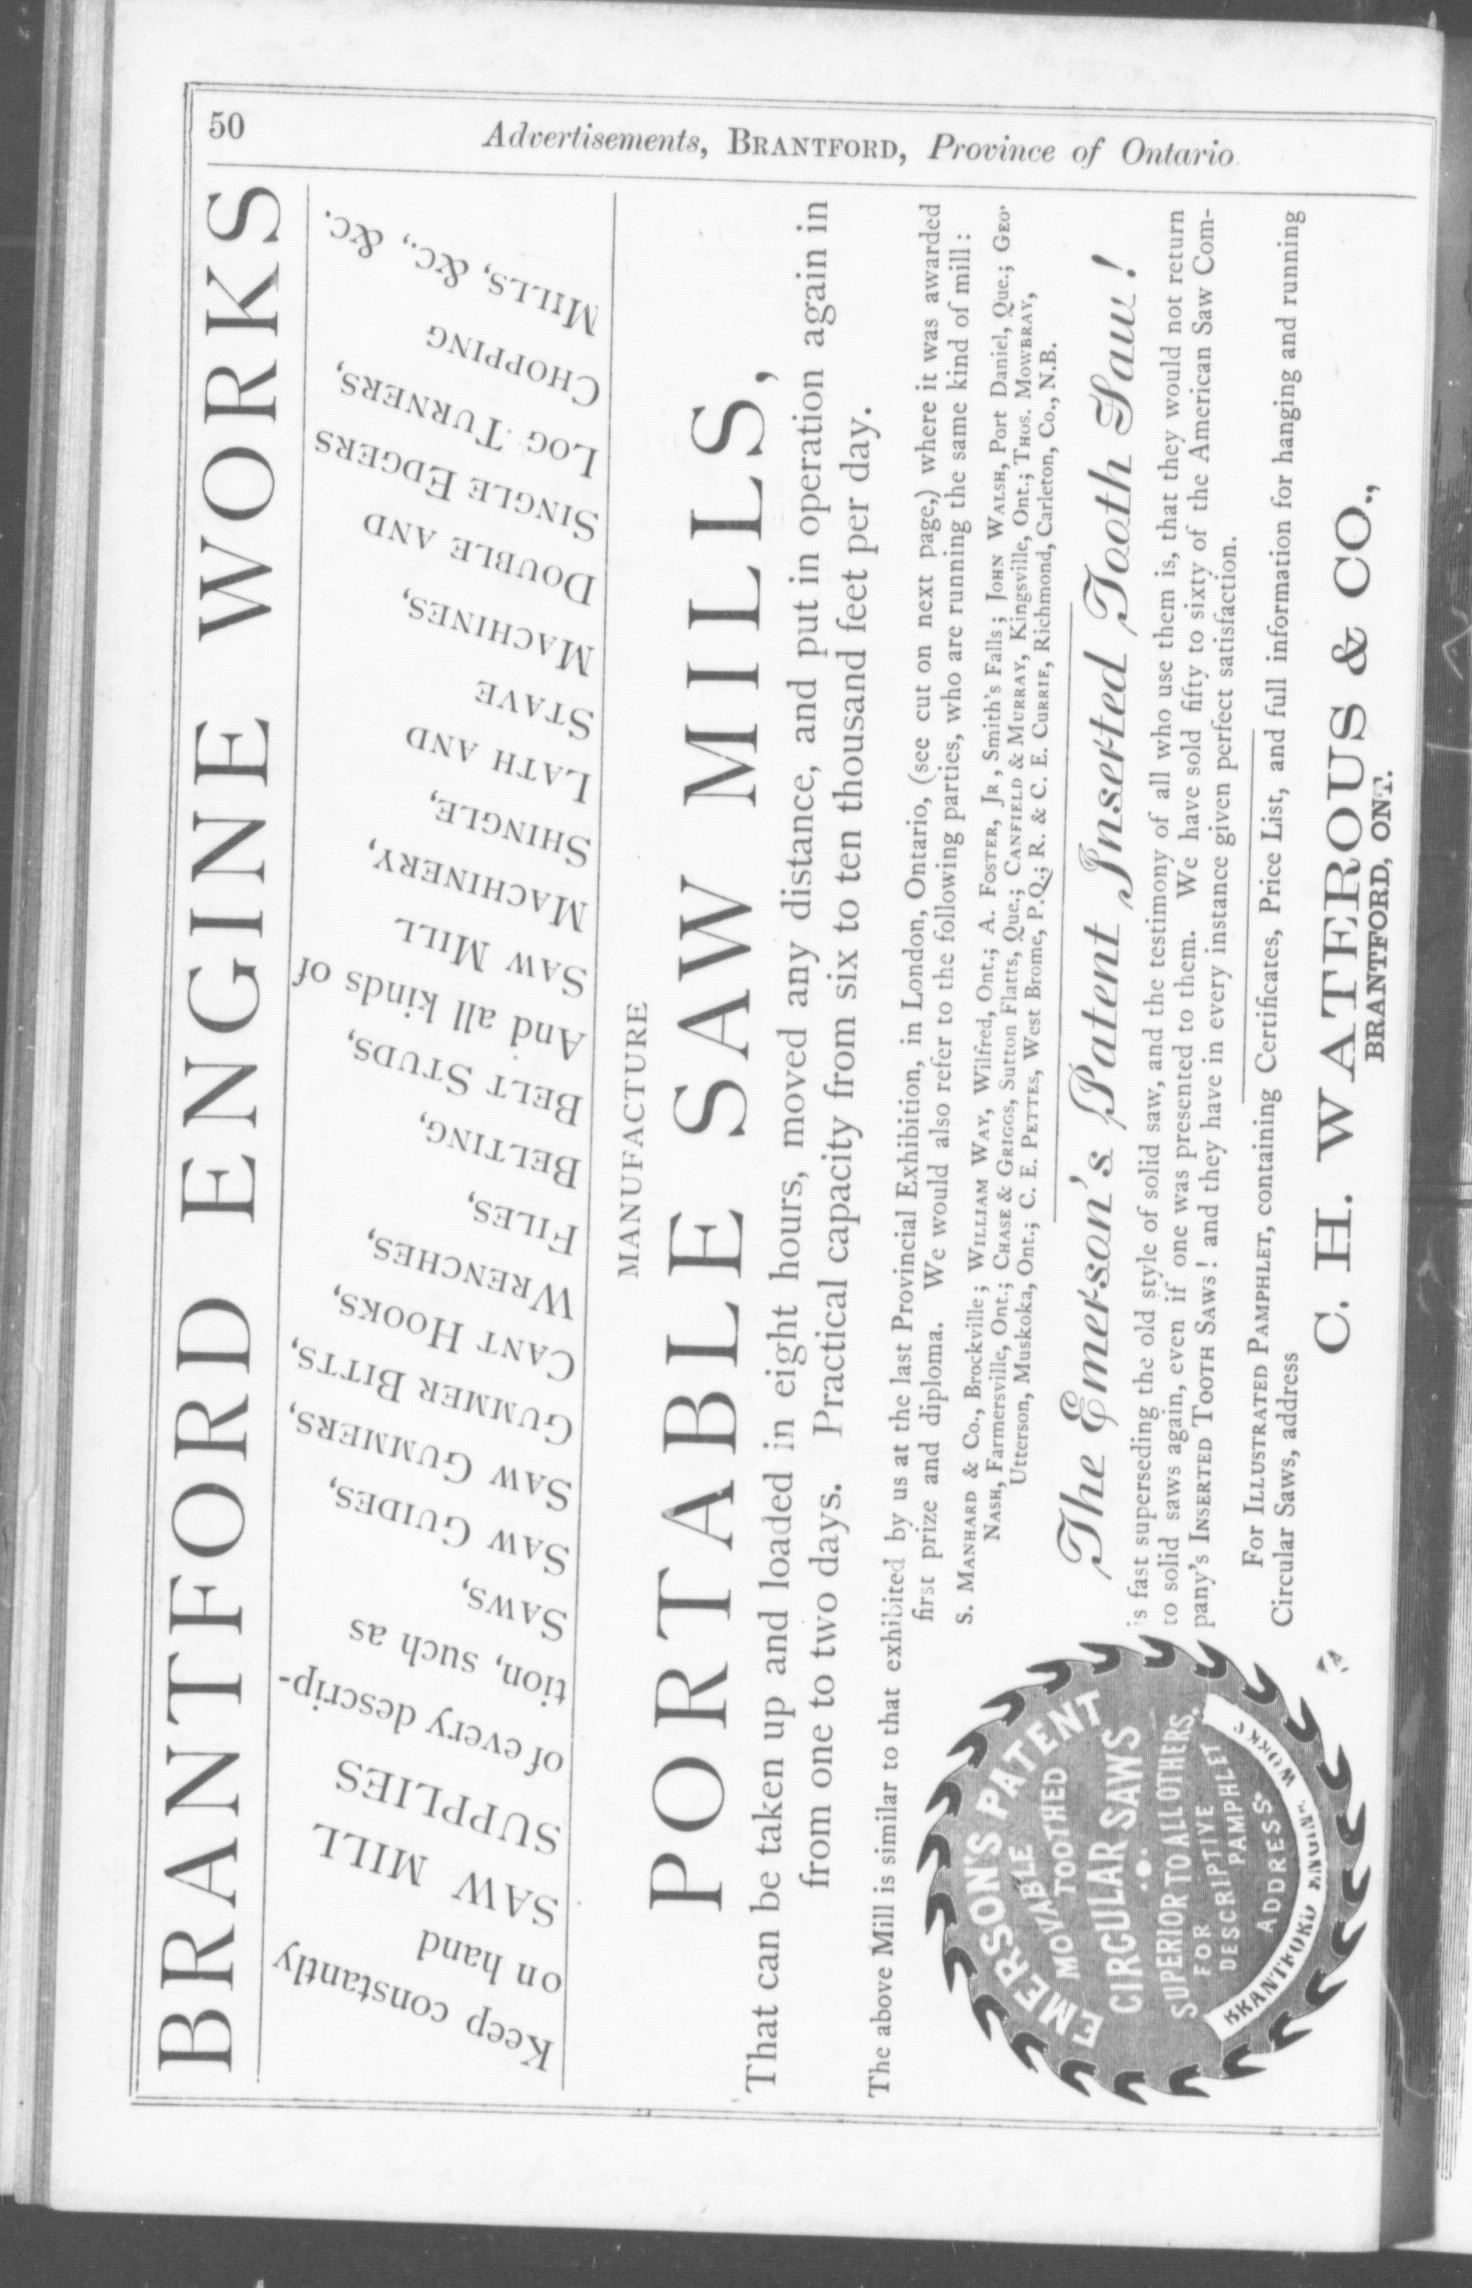 50
Advertisements, BRANTFORD, Province of Ontario
BRANTFORD ENGINE WORKS
Keep constantly
on hand
SAW MILL
SUPPLIES
of every descrip-
tion, such as
SAWS,
SAW GUIDES,
SAW GUMMERS,
GUMMER BITTS,
CANT HOOKS,
WRENCHES,
FILES,
BELTING,
BELT STUDS,
And all kinds of
SAW MILL
MACHINERY,
SHINGLE,
LATH AND
STAVE
MACHINES,
DOUBLE AND
SINGLE EDGERS
LOG TURNERS,
CHOPPING
MILLS, &c., &c.
MANUFACTURE
PORTABLE SAW MILLS,
That can be taken up and loaded in eight hours, moved any distance, and put in operation again in
from one to two days. Practical capacity from six to ten thousand feet per day.
The above Mill is similar to that exhibited by us at the last Provincial Exhibition, in London, Ontario, (see cut on next page,) where it was awarded
first prize and diploma. We would also refer to the following parties, who are running the same kind of mill:
S. MANHARD & Co., Brockville; WILLIAM WAY, Wilfred, Ont.; A. FOSTER, JR, Smith's Falls; JOHN WALSH, Port Daniel, Que.; GEO.
NASH, Farmersville, Ont.; CHASE & GRIGGS, Sutton Flatts, Que.; CANFIELD & MURRAY, Kingsville, Ont.; THOS. MOWBRAY,
Utterson, Muskoka, Ont.; C. E. PETTES, West Brome, P.Q.; R. & C. E. CURRIE, Richmond, Carleton, Co., N.B.
The Emerson's Patent Inserted Tooth Saw!
's fast superseding the old style of solid saw, and the testimony of all who use them is, that they would not return
to solid saws again, even if one was presented to them. We have sold fifty to sixty of the American Saw Com-
pany's INSERTED TOOTH SAWS! and they have in every instance given perfect satisfaction.
For ILLUSTRATED PAMPHLET, containing Certificates, Price List, and full information for hanging and running
Circular Saws, address
C. H. WATEROUS & CO.,
BRANTFORD, ONT.
EMERSON'S PATENT
MOVABLE
TOOTHED
CIRCULAR SAWS
SUPERIOR TO ALL OTHERS.
FOR
DESCRIPTIVE
PAMPHLET
ADDRESS
BRANTFORD ENGINE WORKS